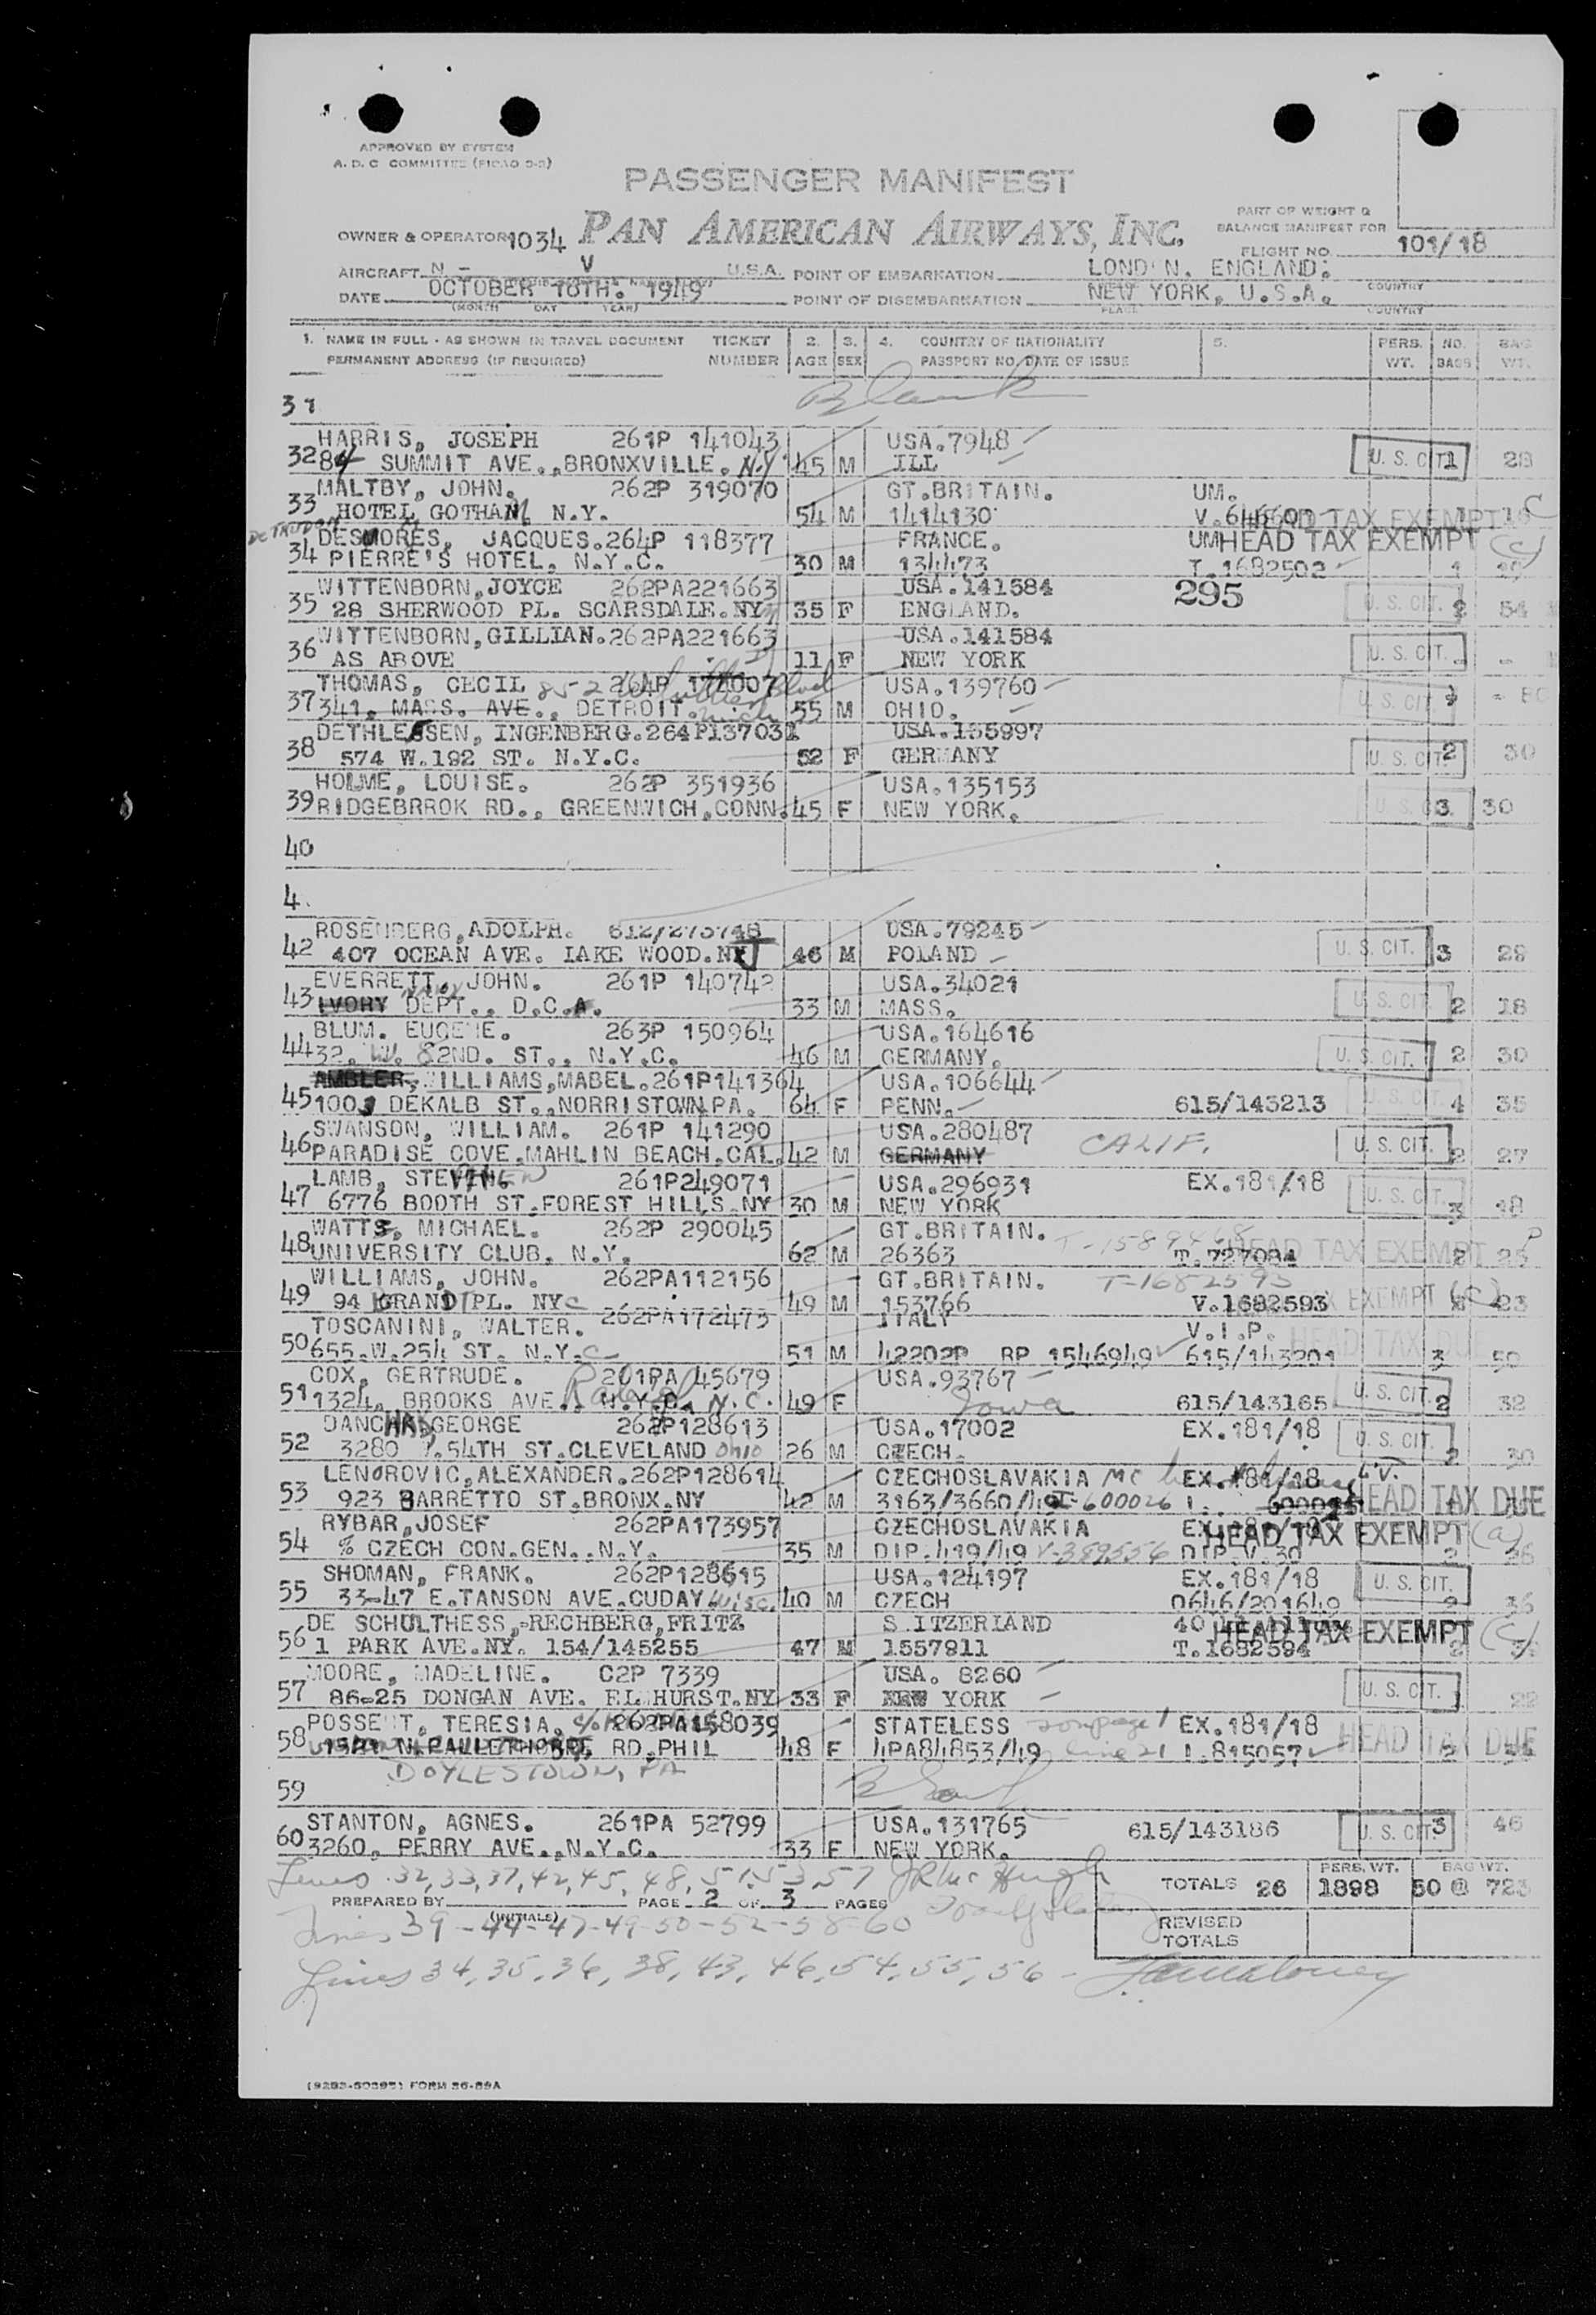 APPROVED BY SYSTEM
A. D. C COMMITTEE
PASSENGER MANIFEST
OWNER & OPERATOR 1034 PAN AMERICAN AIRWAYS, INC.
PART OF WEIGHT &
BALANCE MANIFEST FOR
FLIGHT NO. 101/18
AIRCRAFT N - V U.S.A. POINT OF EMBARKATION LOND N. ENGLAND. COUNTRY
DATE OCTOBER 18TH. 1949 POINT OF DISEMBARKATION NEW YORK, U.S.A. COUNTRY
(MONTH DAY YEAR) PLACE
1. NAME IN FULL - AS SHOWN IN TRAVEL DOCUMENT TICKET 2. 3. 4. COUNTRY OF NATIONALITY 5. PERS. NO. BAG
PERMANENT ADDRESS (IF REQUIRED) NUMBER AGE SEX PASSPORT NO. DATE OF ISSUE WT. BAGS WT.
31 Blank
HARRIS, JOSEPH 261P 141043 USA.7948
32 84 SUMMIT AVE., BRONXVILLE. N.Y 45 M ILL U. S. CIT. 1 28
MALTBY, JOHN. 262P 319070 GT.BRITAIN. UM.
33 HOTEL GOTHAM N.Y. 54 M 1414130 HEAD TAX EXEMPT C
JACQUES. 264P 118377 FRANCE. UM HEAD TAX EXEMPT (C)
34 PIERRE'S HOTEL. N.Y.C. 30 M 134473 T.1682592 1
WITTENBORN, JOYCE 262PA221663 USA.141584 295
35 28 SHERWOOD PL. SCARSDALE.NY 35 F ENGLAND. U. S. CIT. 2 54
WITTENBORN, GILLIAN. 262PA221663 USA.141584
36 AS ABOVE 11 F NEW YORK U. S. CIT. -
THOMAS, CECIL 852 Blvd USA.139760
37 341. MASS. AVE., DETROIT. mich 55 M OHIO. U. S. CIT
DETHLEFSEN, INGENBERG. 264P137031 USA.155997
38 574 W.192 ST. N.Y.C. 52 F GERMANY U. S. CIT. 2 30
HOLME, LOUISE. 262P 351936 USA.135153
39 RIDGEBRROK RD., GREENWICH, CONN. 45 F NEW YORK. U. S. C 3 30
40
4
ROSENBERG, ADOLPH. USA.79245
42 407 OCEAN AVE. LAKE WOOD. NJ 46 M POLAND U. S. CIT. 3 28
EVERRETT, JOHN. 261P 140742 USA.34021
43 IVORY NAVY DEPT., D.C.A. 33 M MASS. U. S. CIT. 2 18
BLUM. EUGENE. 263P 150964 USA.164616
44 32. W. 82ND. ST., N.Y.C. 46 M GERMANY. U. S. CIT. 2 30
AMBLER, WILLIAMS, MABEL. 261P141364 USA.106644
45 1003 DEKALB ST., NORRISTOWN PA. 64 F PENN. 615/143213 U. S. CIT. 4 35
SWANSON, WILLIAM. 261P 141290 USA.280487
46 PARADISE COVE. MAHLIN BEACH. CAL. 42 M GERMANY CALIF. U. S. CIT. 2 27
LAMB, STE 261P249071 USA.296931 EX.181/18
47 6776 BOOTH ST. FOREST HILLS. NY 30 M NEW YORK U. S. CIT. 3 18
WATTS, MICHAEL. 262P 290045 GT.BRITAIN.
48 UNIVERSITY CLUB. N.Y. 62 M 26363 T.727084 HEAD TAX EXEMPT 2 25
WILLIAMS, JOHN. 262PA112156 GT.BRITAIN. T-1682593
49 94 GRAND PL. NYC 49 M 153766 V.1682593 EXEMPT (C) 23
TOSCANINI, WALTER. 262PA172473 ITALY V.I.P.
50 655. W.254 ST. N.Y.C 51 M 42202P RP 1546949 615/143201 HEAD TAX DUE 3 50
COX, GERTRUDE. 201PA 45679 USA.93767
51 1324. BROOKS AVE. Raleigh N.C. 49 F Iowa 615/143165 U. S. CIT. 2 32
GEORGE 262P128613 USA.17002 EX.181/18
52 3280 .54TH ST. CLEVELAND Ohio 26 M CZECH. U. S. CIT. 2 30
LENOROVIC, ALEXANDER. 262P128614 CZECHOSLAVAKIA EX.181/18
53 923 BARRETTO ST. BRONX. NY 42 M 3163/3660/49 I-600026 HEAD TAX DUE
RYBAR, JOSEF 262PA173957 CZECHOSLAVAKIA HEAD TAX EXEMPT (a)
54 % CZECH CON. GEN., N.Y. 35 M DIP.419/49 V-389556 DIP.V.30 2
SHOMAN, FRANK. 262P128615 USA.124197 EX.181/18
55 33-47 E. TANSON AVE. CUDAY Wisc. 40 M CZECH 0646/201649 U. S. CIT. 2 36
DE SCHULTHESS, RECHBERG, FRITZ S ITZERLAND
56 1 PARK AVE. NY. 154/145255 47 M 1557811 T.1682594 HEAD TAX EXEMPT (C)
MOORE, MADELINE. C2P 7339 USA. 8260
57 86-25 DONGAN AVE. ELMHURST. NY 33 F NEW YORK U. S. CIT. 1 22
POSSE T, TERESIA. 262PA158039 STATELESS EX.181/18
58 RD, PHIL 48 F 4PA84853/49 line 21 I.815057 HEAD TAX DUE
DOYLESTOWN, PA
59 Blank
STANTON, AGNES. 261PA 52799 USA.131765
60 3260, PERRY AVE., N.Y.C. 33 F NEW YORK. 615/143186 U. S. CIT. 3 46
Lines 32,33,37,42,45,48,51,53,57 JR Mc Hugh
TOTALS 26 PERS. WT. 1898 BAG WT. 50 @ 723
PREPARED BY (INITIALS) PAGE 2 OF 3 PAGES
Lines 39-44-47-49-50-52-58-60
REVISED TOTALS
Lines 34, 35, 36, 38, 43, 46, 54, 55, 56 -
FORM 36-89A